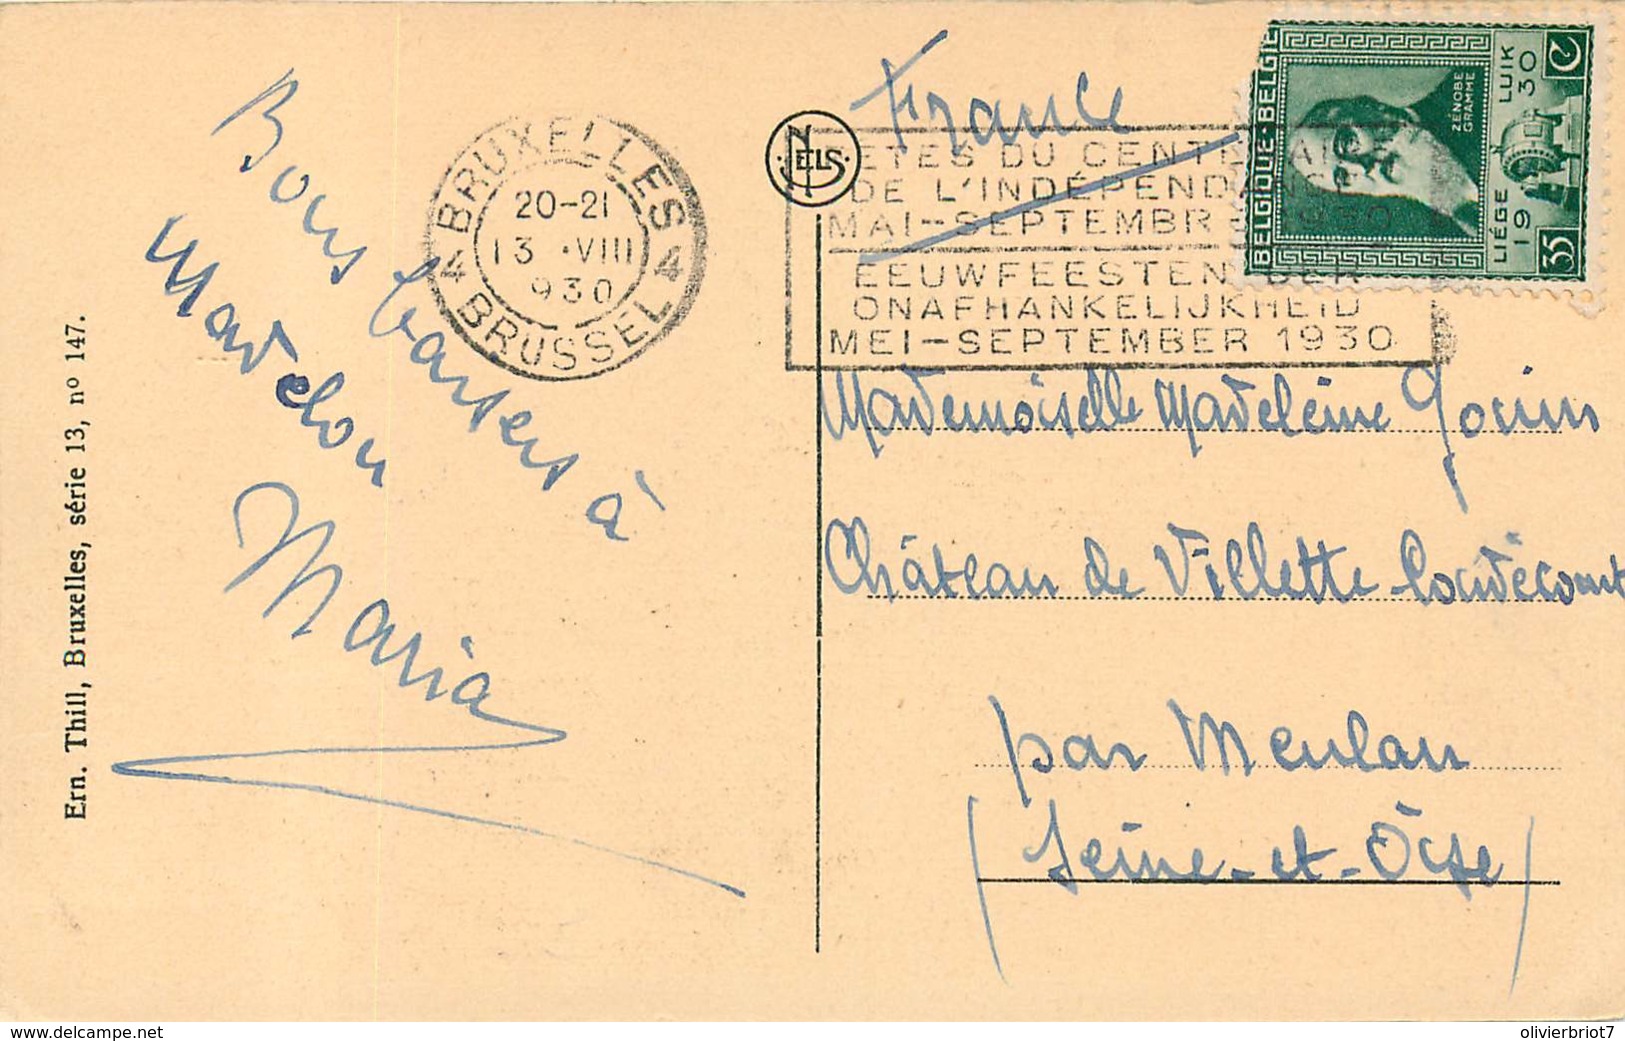 Bons baisers à
Madelon
Maria
Ern. Thill, Bruxelles, série 13, nº 147.
BRUXELLES
4 4
20-21
13 · VIII
930
BRUSSEL
NELS
France
FÊTES DU CENTENAIRE
DE L'INDÉPENDANCE
MAI-SEPTEMBRE 1930
EEUWFEESTEN DER
ONAFHANKELIJKHEID
MEI-SEPTEMBER 1930
BELGIQUE·BELGIË
ZENOBE
GRAMME
LIÉGE LUIK
1930
35 c
Mademoiselle Madeleine
Château de Villette Condécourt
par Meulan
(Seine-et-Oise)
delcampe.net
olivierbriot7